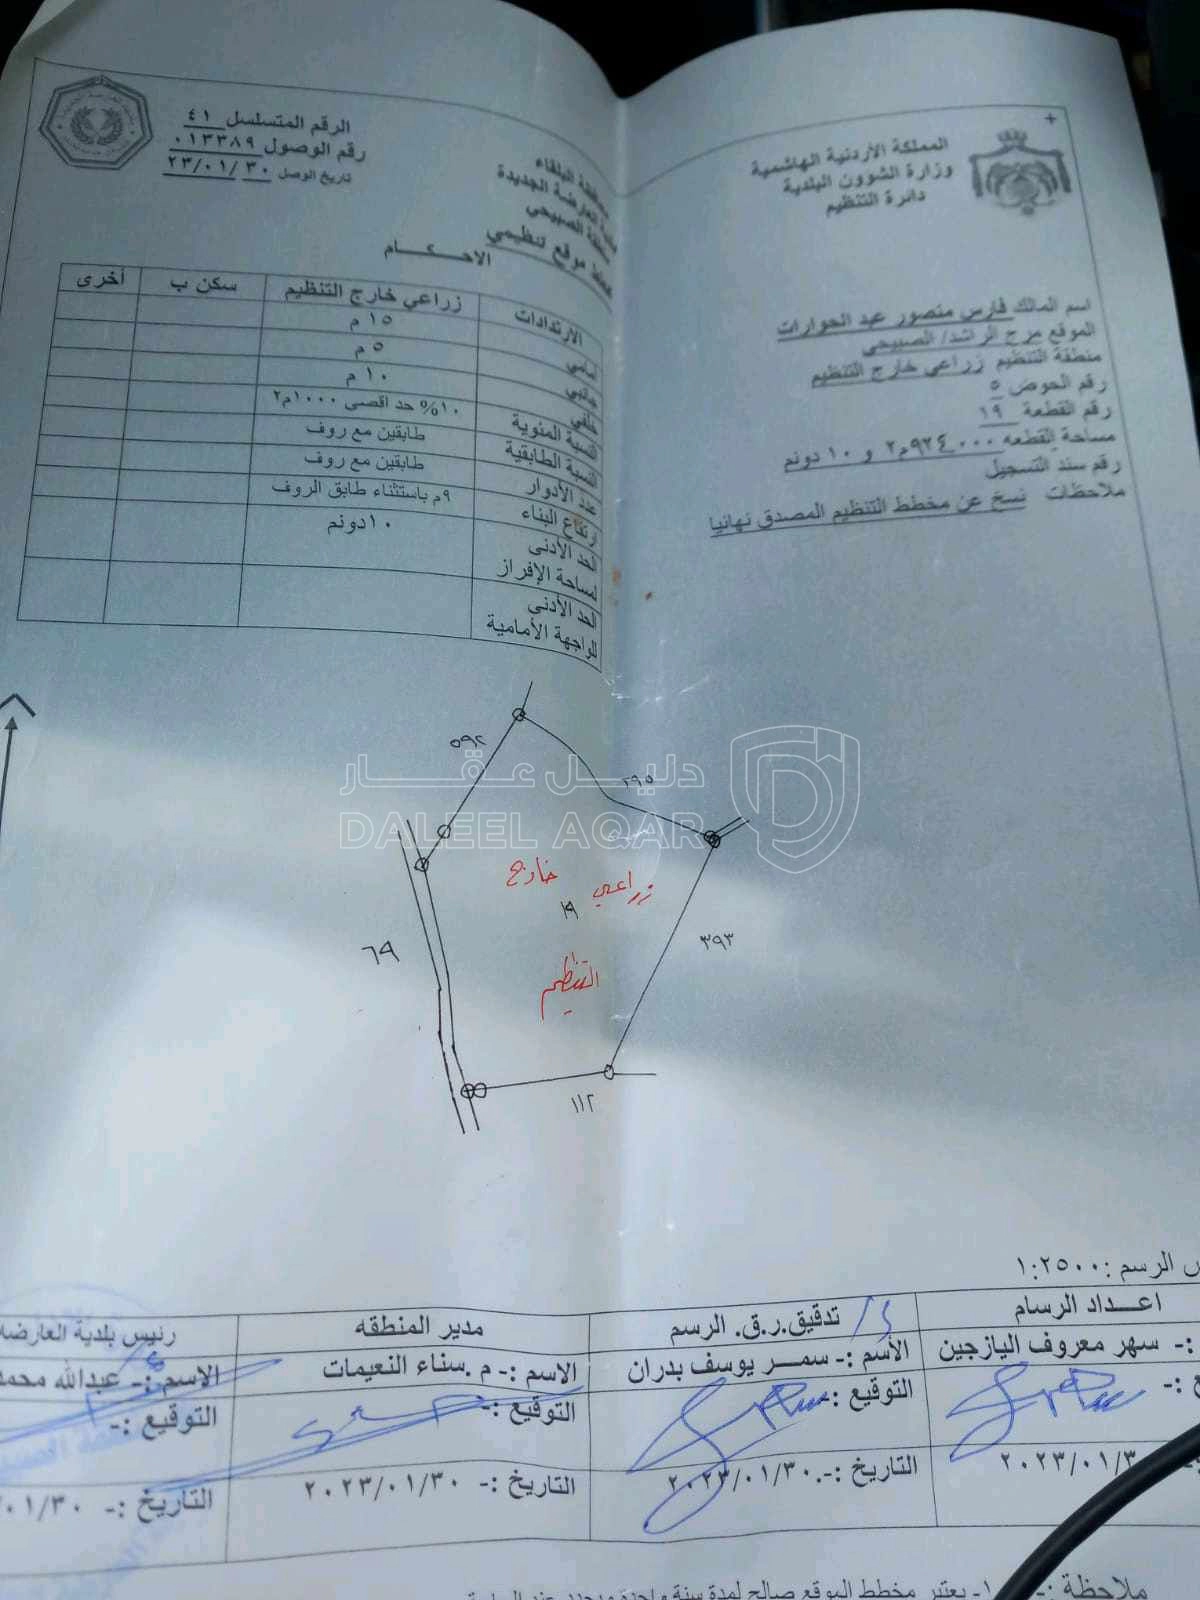 المملكة الأردنية الهاشمية
وزارة الشوون البلدية
دائرة التنظيم
البلقاء
العارضة الجديدة
الصبيحي
موقع تنظيمي
الرقم المتسلسل ٤١
رقم الوصول ٠١٣٣٨٩
تاريخ الوصل ٢٣/٠١/٣٠
اسم المالك فارس منصور عبد الحوارات
الموقع مرج الراشد/ الصبيحي
منطقة التنظيم زراعي خارج التنظيم
رقم الحوض ٥
رقم القطعة ١٩
مساحة القطعه ٩٢٤.٠٠٠م٢ و ١٠ دونم
رقم سند التسجيل
ملاحظات نسخ عن مخطط التنظيم المصدق نهائيا
الاحـكــــام
الارتدادات زراعي خارج التنظيم سكن ب أخرى
امامي ١٥ م
جانبي ٥ م
خلفي ١٠ م
النسبة المئوية ١٠% حد اقصى ١٠٠٠م٢
النسبة الطابقية طابقين مع روف
عدد الأدوار طابقين مع روف
ارتفاع البناء ٩م باستثناء طابق الروف
الحد الأدنى لمساحة الإفراز ١٠دونم
الحد الأدنى للواجهة الأمامية
٥٩٢
٢٩٥
دليل عقار
DALEEL AQAR
زراعي خارج
١٩
التنظيم
٦٩
٣٩٣
١١٢
الرسم :١:٢٥٠٠
اعــداد الرسام تدقيق.ر.ق. الرسم مدير المنطقه رئيس بلدية العارضه
:- سهر معروف اليازجين الأسم :- سمــر يوسف بدران الاسم :- م .سناء النعيمات الاسم :- عبدالله محمد
:- التوقيع :- التوقيع :- التوقيع :-
٢٠٢٣/٠١/٣٠ التاريخ :-.٢٠٢٣/٠١/٣٠ التاريخ :- ٢٠٢٣/٠١/٣٠ التاريخ :- ٠١/٣٠
ملاحظة :- ١- يعتبر مخطط الموقع صالح لمدة سنة واحدة